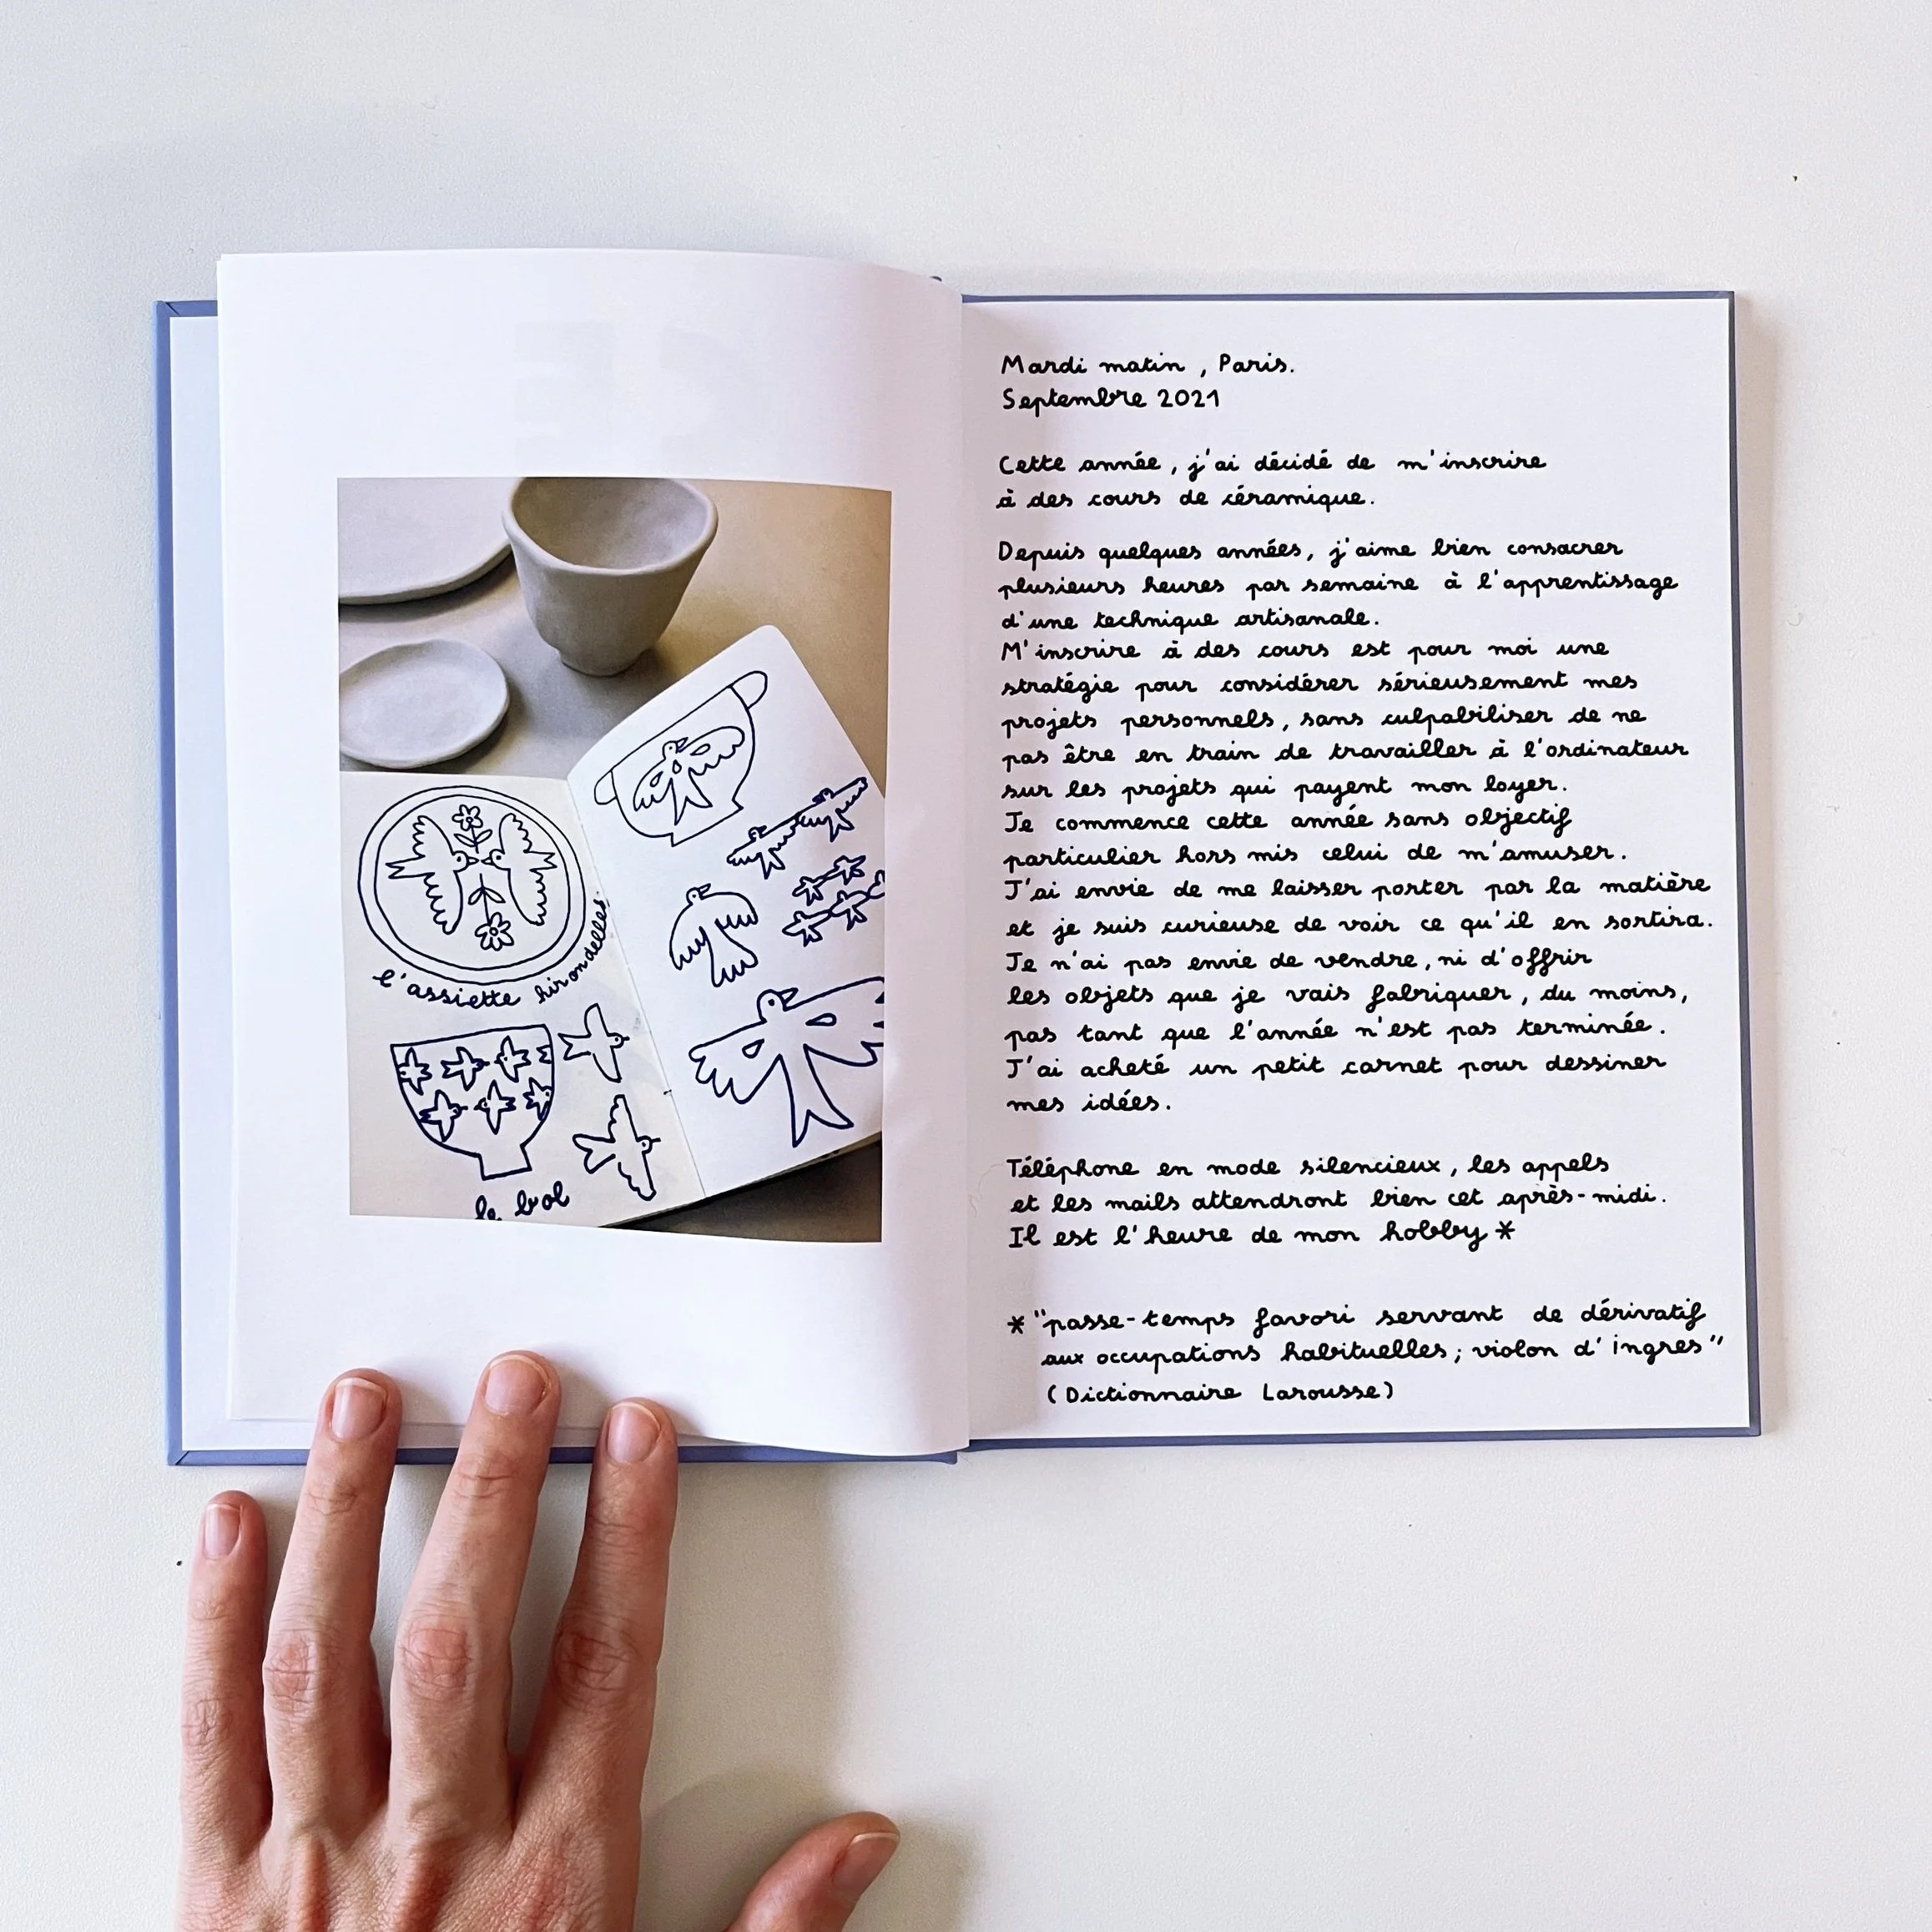 l'assiette hirondelles.
le bol
Mardi matin, Paris.
Septembre 2021
Cette année, j'ai décidé de m'inscrire
à des cours de céramique.
Depuis quelques années, j'aime bien consacrer
plusieurs heures par semaine à l'apprentissage
d'une technique artisanale.
M'inscrire à des cours est pour moi une
stratégie pour considérer sérieusement mes
projets personnels, sans culpabiliser de ne
pas être en train de travailler à l'ordinateur
sur les projets qui payent mon loyer.
Je commence cette année sans objectif
particulier hors mis celui de m'amuser.
J'ai envie de me laisser porter par la matière
et je suis curieuse de voir ce qu'il en sortira.
Je n'ai pas envie de vendre, ni d'offrir
les objets que je vais fabriquer, du moins,
pas tant que l'année n'est pas terminée.
J'ai acheté un petit carnet pour dessiner
mes idées.
Téléphone en mode silencieux, les appels
et les mails attendront bien cet après-midi.
Il est l'heure de mon hobby *
* "passe-temps favori servant de dérivatif
aux occupations habituelles; violon d'ingres"
(Dictionnaire Larousse)